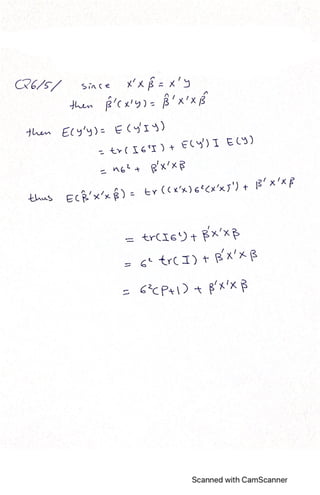 Q6/5/ since x'xβ̂ = x'y
then β̂'(x'y) = β̂'x'xβ̂
then E(y'y) = E(y'Iy)
= tr(I6²I) + E(y')I E(y)
= n6² + β'x'xβ
thus E(β̂'x'xβ̂) = tr((x'x)6²(x'x)⁻¹) + β'x'xβ
= tr(I6²) + β'x'xβ
= 6² tr(I) + β'x'xβ
= 6²(P+1) + β'x'xβ
Scanned with CamScanner